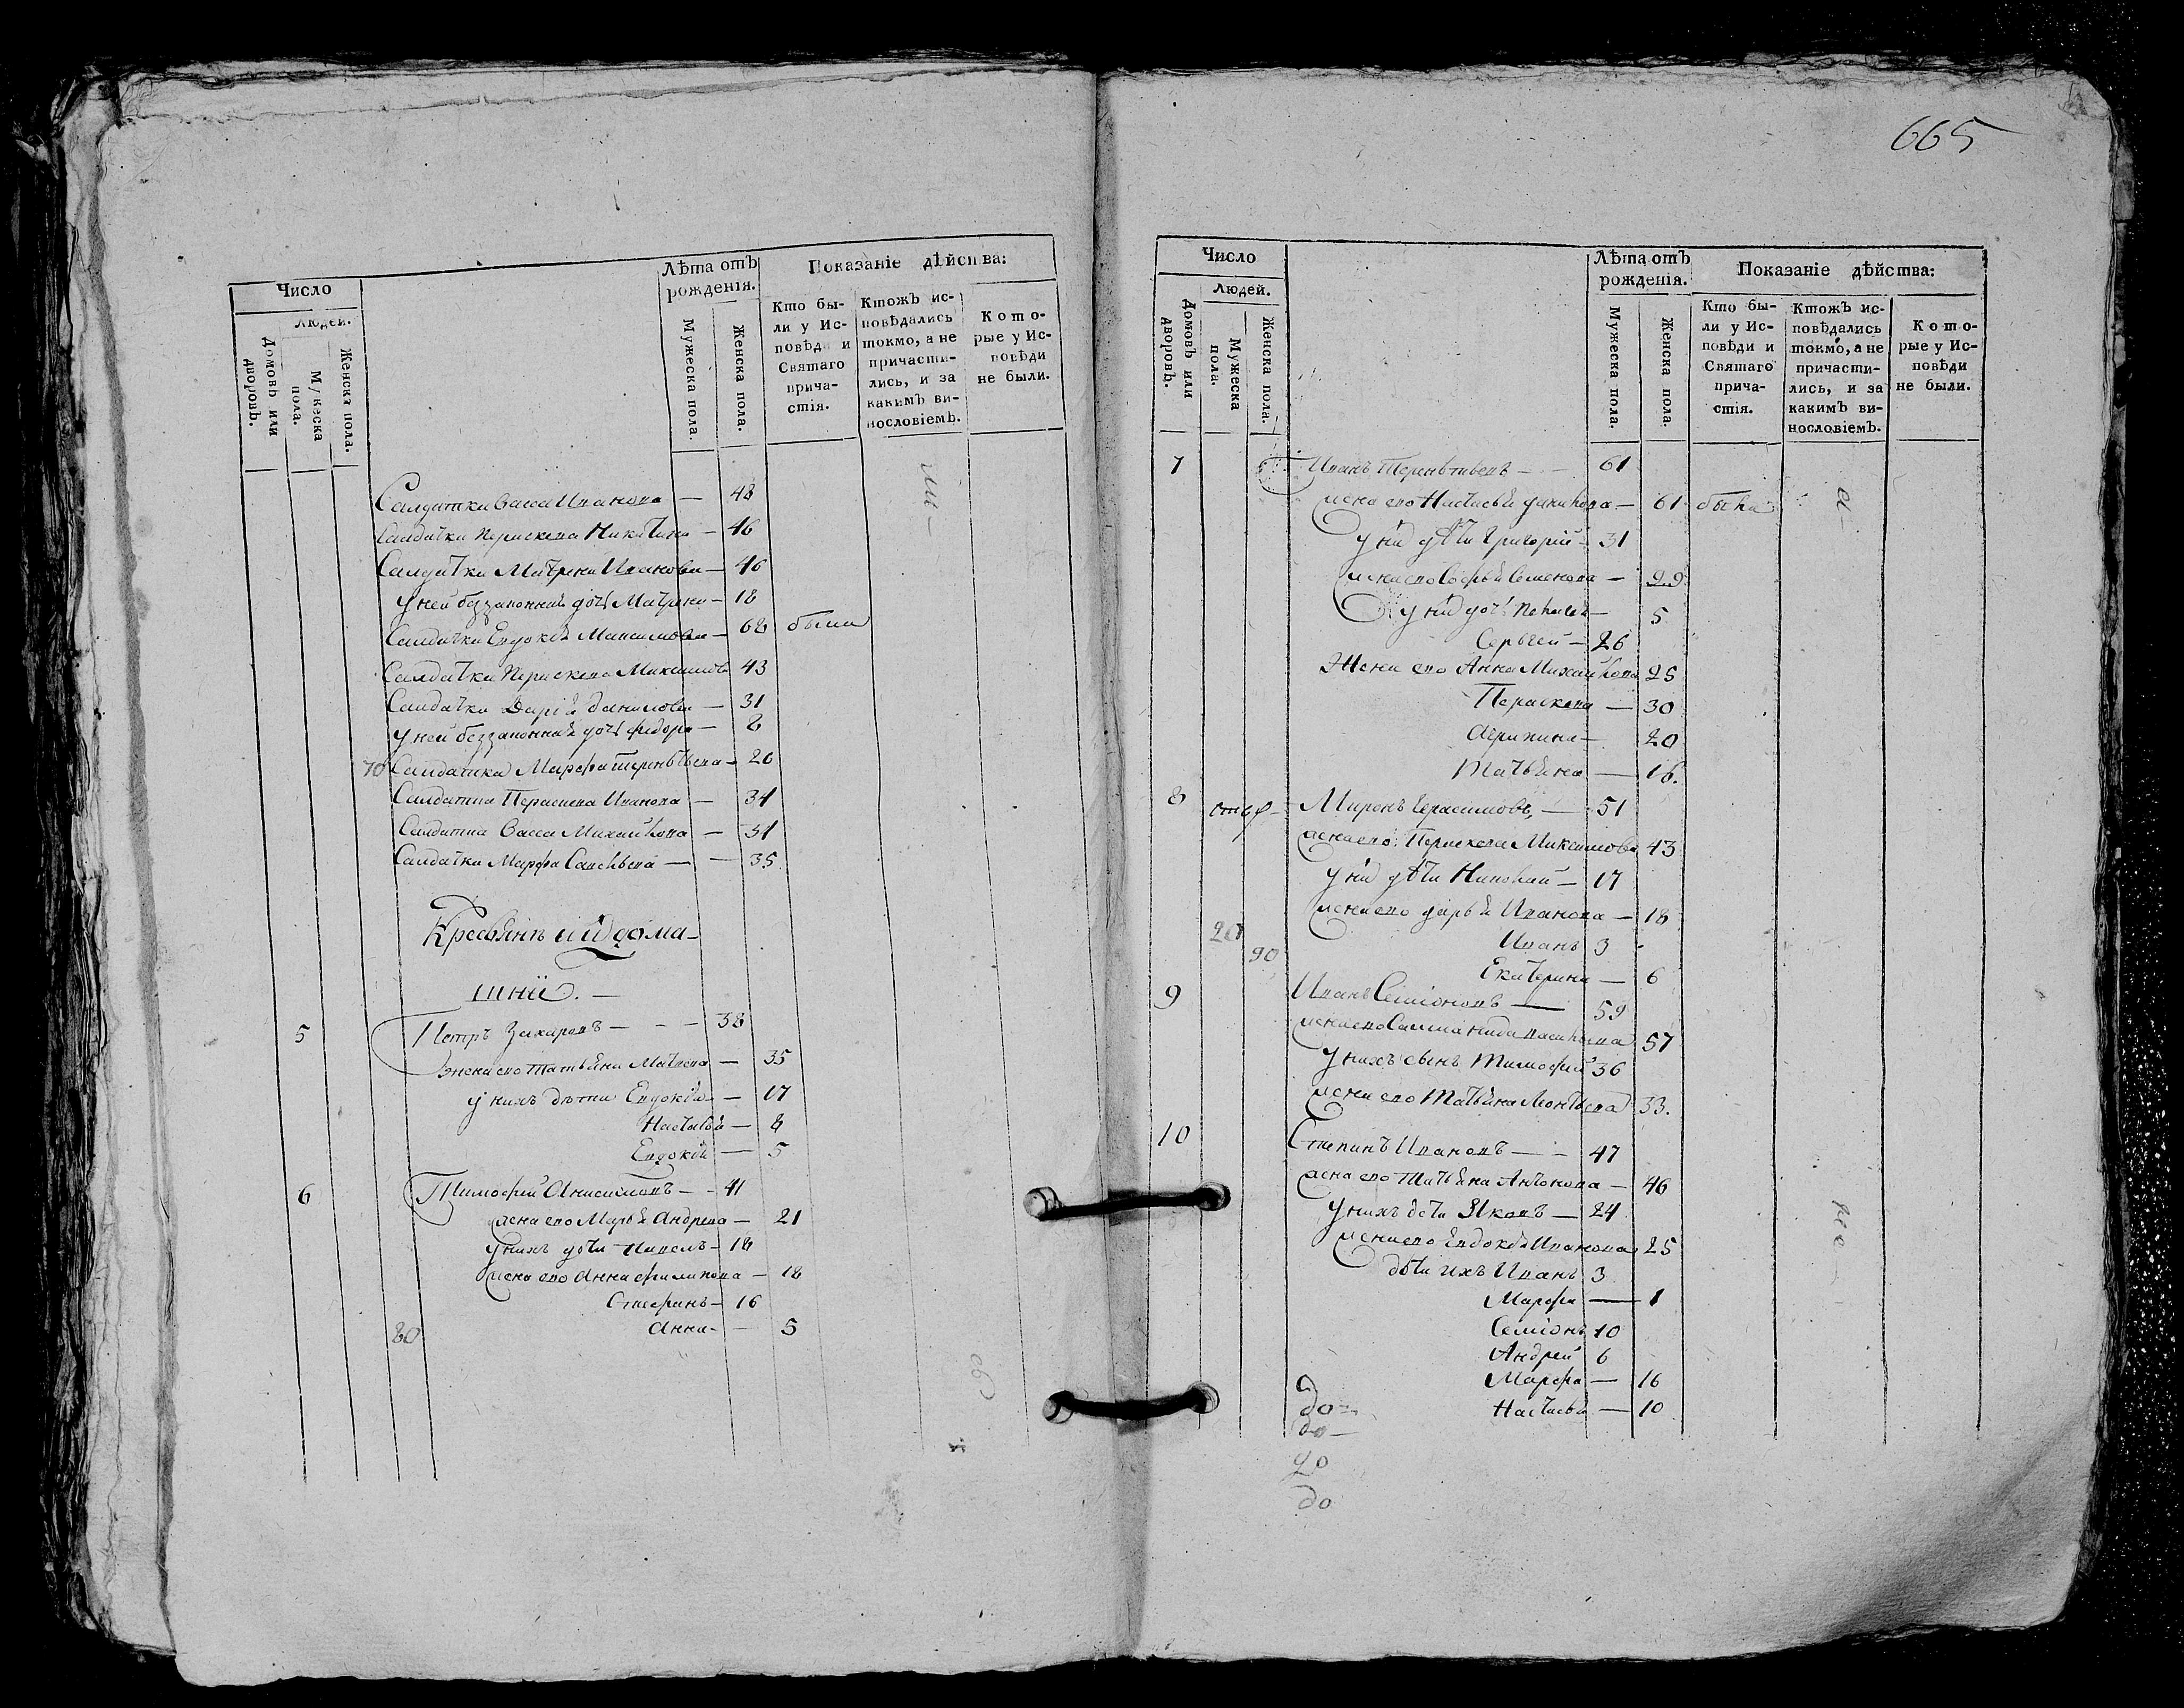 665
Число
Лѣта отъ рожденія.
Показаніе дѣйства:
Людей.
Домовъ или дворовъ.
Мужеска пола.
Женска пола.
Мужеска пола.
Женска пола.
Кто бы-
ли у Ис-
повѣди и
Святаго
прича-
стія.
Ктожъ ис-
повѣдались
токмо, а не
причасти-
лись, и за
какимъ ви-
нословіемъ.
Кото-
рые у Ис-
повѣди
не были.
Салдатка Васа Иванова — 48
Салдатка Параскева Никитина — 46
Салдатка Матрена Иванова — 46
у ней беззаконная дочь Матрена — 18
Салдатка Евдокія Максимова — 68 были
Салдатка Параскева Максимова 43
Салдатка Дарія Данилова — 31
у ней беззаконная дочь Федора — 8
70 Салдатка Марфа Терентьева — 26
Салдатка Параскева Иванова — 34
Салдатка Васса Михайлова — 31
Салдатка Марфа Савельева — 35
Кресьянъ и іх дома-
шніх. —
5 Петръ Захаровъ — 38
жена его Татьяна Матвеева — 35
у нихъ дѣти Евдокія — 17
Настасья — 8
Евдокія — 5
6 Тимофей Анисимовъ — 41
жена его Марья Андреева — 21
у нихъ дѣти — 18
жена его Анна Филипова — 18
Стефанъ — 16
80 Анна — 5
Число
Лѣта отъ рожденія.
Показаніе дѣйства:
Людей.
Домовъ или дворовъ.
Мужеска пола.
Женска пола.
Мужеска пола.
Женска пола.
Кто бы-
ли у Ис-
повѣди и
Святаго
прича-
стія.
Ктожъ ис-
повѣдались
токмо, а не
причасти-
лись, и за
какимъ ви-
нословіемъ.
Кото-
рые у Ис-
повѣди
не были.
7 Иванъ Терентьевъ — 61
жена его Настасья Данилова — 61 были
у ніх дѣти Григорій — 31
жена его Софья Семенова — 29
у ніх дочь — 5
Сергей — 26
Жена его Анна Михайлова 25
Параскева — 30
Агрипина — 20
Татьяна — 16.
8 Миронъ Герасимовъ, — 51
жена его Параскева Максимова 43
у ніх дѣти Николай — 17
жена его Дарья Иванова — 18
20 Иванъ 3
90 Екатерина — 6
9 Иванъ Семіоновъ — 59
жена его Саламанида 57
у нихъ сынъ Тимофей 36
жена его Татьяна Леонтьева 33.
10 Степанъ Ивановъ — 47
жена его Татьяна Антонова — 46
у нихъ дети Яковъ — 24
жена его Евдокея Иванова 25
дѣти ихъ Иванъ 3
Марфа — 1
Семіонъ 10
Андрей 6
Марфа — 16
до Настасья — 10
до
до
до